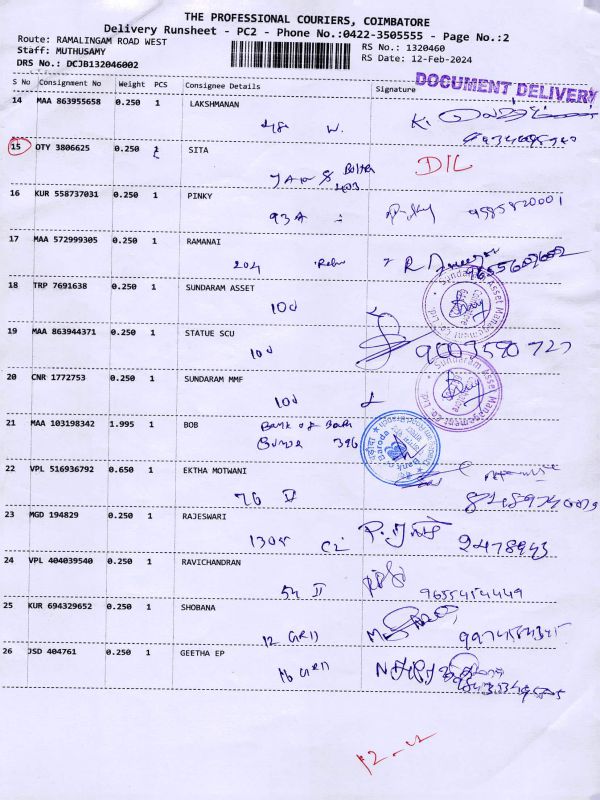 THE PROFESSIONAL COURIERS, COIMBATORE
Delivery Runsheet - PC2 - Phone No.:0422-3505555 - Page No.:2
Route: RAMALINGAM ROAD WEST
Staff: MUTHUSAMY
DRS No.: DCJB132046002
RS No.: 1320460
RS Date: 12-Feb-2024
DOCUMENT DELIVERY
S No Consignment No Weight PCS Consignee Details Signature
14 MAA 863955658 0.250 1 LAKSHMANAN
48 W.
15 OTY 3806625 0.250 SITA
DIL
403
16 KUR 558737031 0.250 1 PINKY
93A 9585820001
17 MAA 572999305 0.250 1 RAMANAI
204 9655602602
18 TRP 7691638 0.250 1 SUNDARAM ASSET
100
19 MAA 863944371 0.250 1 STATUE SCU
100 9003580727
20 CNR 1772753 0.250 1 SUNDARAM MMF
100
Sundaram Asset Management Co Ltd
Sundaram Asset Management Co Ltd
21 MAA 103198342 1.995 1 BOB
Bank of Baroda
396
22 VPL 516936792 0.650 1 EKTHA MOTWANI
76 II
23 MGD 194829 0.250 1 RAJESWARI
24 VPL 404039540 0.250 1 RAVICHANDRAN
54 II 9655454449
25 KUR 694329652 0.250 1 SHOBANA
12 GRD 9974584345
26 JSD 404761 0.250 1 GEETHA EP
16 GRD